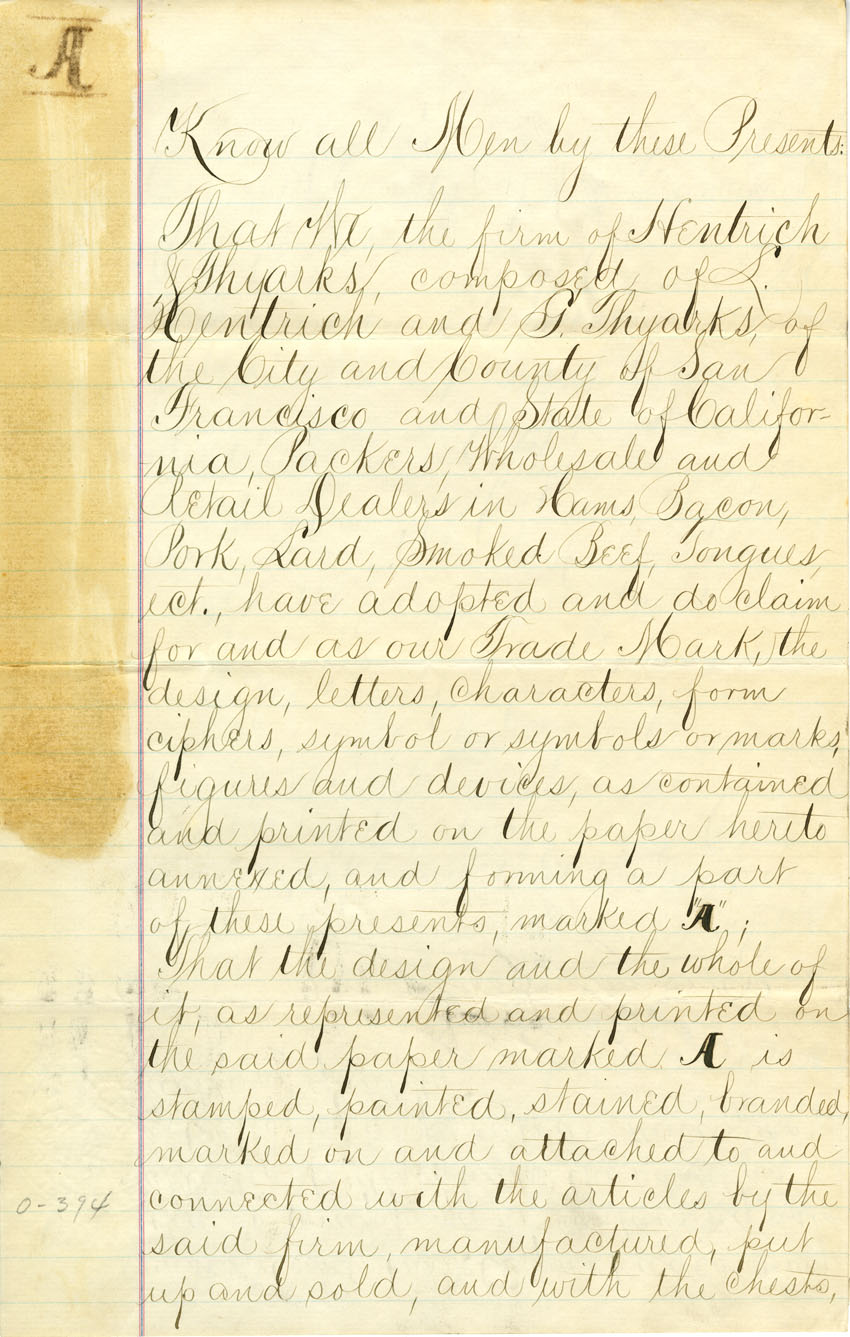 A
Know all Men by these Presents:
That We, the firm of Hentrich
& Thyarks, composed of L.
Hentrich and G. Thyarks, of
the City and County of San
Francisco and State of Califor-
nia, Packers, Wholesale and
Retail Dealers in Hams, Bacon,
Pork, Lard, Smoked Beef, Tongues,
ect., have adopted and do claim
for and as our Trade Mark, the
design, letters, characters, form
ciphers, symbol or symbols or marks,
figures and devices, as contained
and printed on the paper hereto
annexed, and forming a part
of these presents, marked "A";
That the design and the whole of
it, as represented and printed on
the said paper marked A is
stamped, painted, stained, branded,
marked on and attached to and
connected with the articles by the
said firm, manufactured, put
up and sold, and with the chests,
0-394